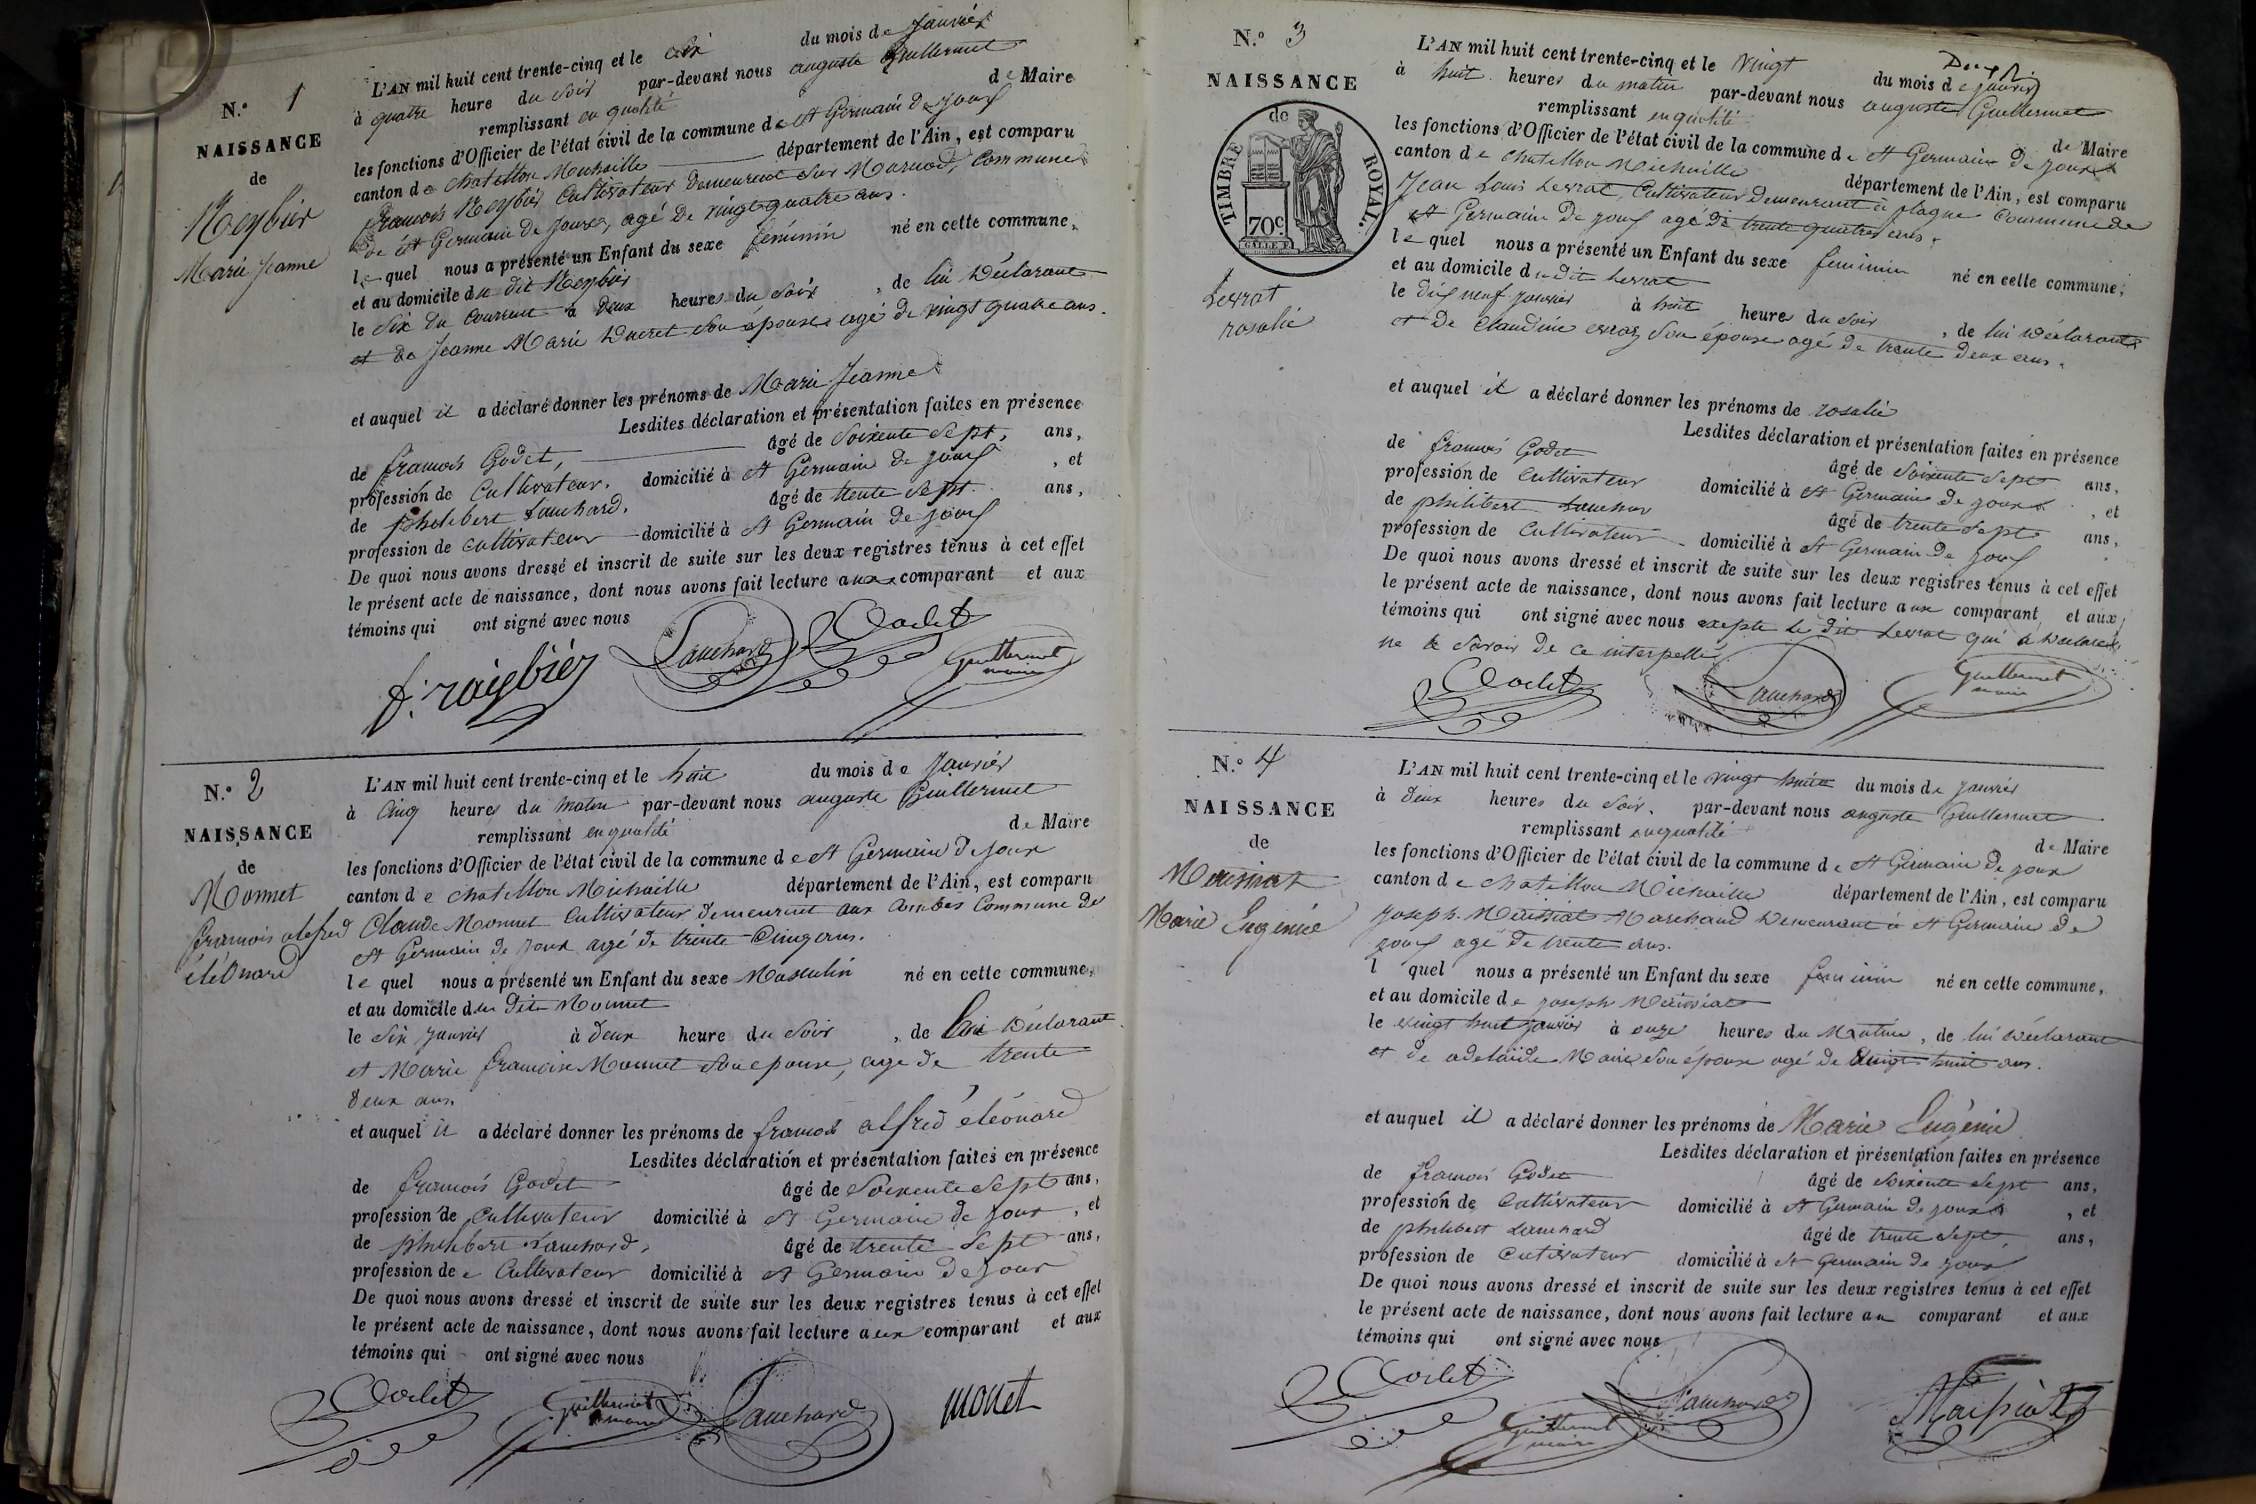 N.° 1
NAISSANCE
de
Reybier
Marie Jeanne
L'AN mil huit cent trente-cinq et le six du mois de Janvier
à quatre heure du Soir par-devant nous auguste Guillermet
remplissant en qualité de Maire
les fonctions d'Officier de l'état civil de la commune de St Germain De joux
canton de Chatillon Michaille département de l'Ain, est comparu
francois Reybier Cultivateur Demeurent Sur Marnod, Commune
de St Germain de Joux, agé De vingt quatre ans.
le quel nous a présenté un Enfant du sexe féminin né en cette commune,
et au domicile du dit Reybier
le Six du Courrent à Deux heures du Soir, de lui Déclarant
et de Jeanne Marie Ducret Son épouse agé de vingt quatre ans.
et auquel il a déclaré donner les prénoms de Marie Jeanne
Lesdites déclaration et présentation faites en présence
de francois Godet, âgé de Soixente Sept, ans,
profession de Cultivateur. domicilié à St Germain De joux, et
de philibert Lauchard. âgé de trente Sept. ans,
profession de Cultivateur domicilié à St Germain De joux
De quoi nous avons dressé et inscrit de suite sur les deux registres tenus à cet effet
le présent acte de naissance, dont nous avons fait lecture aux comparant et aux
témoins qui ont signé avec nous
f. raigbier Lauchard Godet Guillermet
maire
N.° 2
NAISSANCE
de
Monnet
francois alfred
éléonard
L'AN mil huit cent trente-cinq et le huit du mois de Janvier
à Cinq heures du matin par-devant nous auguste Guillermet
remplissant en qualité de Maire
les fonctions d'Officier de l'état civil de la commune de St Germain De joux
canton de Chatillon Michaille département de l'Ain, est comparu
Claude Monnet Cultivateur Demeurent aux Commune De
St Germain de joux agé de trente Cinq ans.
le quel nous a présenté un Enfant du sexe Masculin né en cette commune,
et au domicile du dit Monnet
le Six janvier à deux heure du Soir, de lui Déclarant
et Marie francoise Monnet Son epouse, age de trente
deux ans.
et auquel il a déclaré donner les prénoms de francois alfred éléonard
Lesdites déclaration et présentation faites en présence
de francois Godet âgé de Soixente Sept ans,
profession de Cultivateur domicilié à St Germain de joux, et
de philibert Lauchard, âgé de trente Sept ans,
profession de Cultivateur domicilié à St Germain De joux
De quoi nous avons dressé et inscrit de suite sur les deux registres tenus à cet effet
le présent acte de naissance, dont nous avons fait lecture aux comparant et aux
témoins qui ont signé avec nous
Godet Guillermet Lauchard monet
maire
N.° 3
NAISSANCE
de
TIMBRE ROYAL.
70c.
Levrat
rosalie
L'AN mil huit cent trente-cinq et le vingt du mois de janvier
à huit heures du matin par-devant nous auguste Guillermet
remplissant en qualité de Maire
les fonctions d'Officier de l'état civil de la commune de St Germain De joux
canton de Chatillon Michaille département de l'Ain, est comparu
Jean Louis Levrat, Cultivateur Demeurant à plagne Commune de
St Germain De joux agé de trente quatre ans.
le quel nous a présenté un Enfant du sexe feminin né en cette commune,
et au domicile du dit Levrat
le dix neuf janvier à huit heures du Soir, de lui Déclarant
et De Claudine Son épouse agé de trente deux ans.
et auquel il a déclaré donner les prénoms de rosalie
Lesdites déclaration et présentation faites en présence
de francois Godet âgé de Soixente Sept ans,
profession de Cultivateur domicilié à St Germain de joux, et
de philibert Lauchar âgé de trente Sept ans,
profession de Cultivateur domicilié à St Germain De joux
De quoi nous avons dressé et inscrit de suite sur les deux registres tenus à cet effet
le présent acte de naissance, dont nous avons fait lecture aux comparant et aux
témoins qui ont signé avec nous exepte le dit Levrat qui a Déclaré
ne Savoir De ce interpellé
Godet Lauchard Guillermet
maire
N.° 4
NAISSANCE
de
Maissiat
Marie Eugénie
L'AN mil huit cent trente-cinq et le vingt huit du mois de Janvier
à deux heures du Soir. par-devant nous auguste Guillermet
remplissant en qualité de Maire
les fonctions d'Officier de l'état civil de la commune de St Germain De joux
canton de Chatillon Michaille département de l'Ain, est comparu
Joseph Maissiat Marchand Demeurant à St Germain de
joux agé de trente ans.
l quel nous a présenté un Enfant du sexe feminin né en cette commune,
et au domicile de joseph Maissiat
le vingt huit janvier à onze heures du Matin, de lui Déclarant
et de adelaide Son épouse agé de vingt huit ans.
et auquel il a déclaré donner les prénoms de Marie Eugénie
Lesdites déclaration et présentation faites en présence
de francois Godet âgé de Soixente Sept ans,
profession de Cultivateur domicilié à St Germain De joux, et
de philibert Lauchard âgé de trente Sept, ans,
profession de Cutivateur domicilié à St Germain de joux
De quoi nous avons dressé et inscrit de suite sur les deux registres tenus à cet effet
le présent acte de naissance, dont nous avons fait lecture au comparant et aux
témoins qui ont signé avec nous
Godet Guillermet Lauchard Maissiat
maire